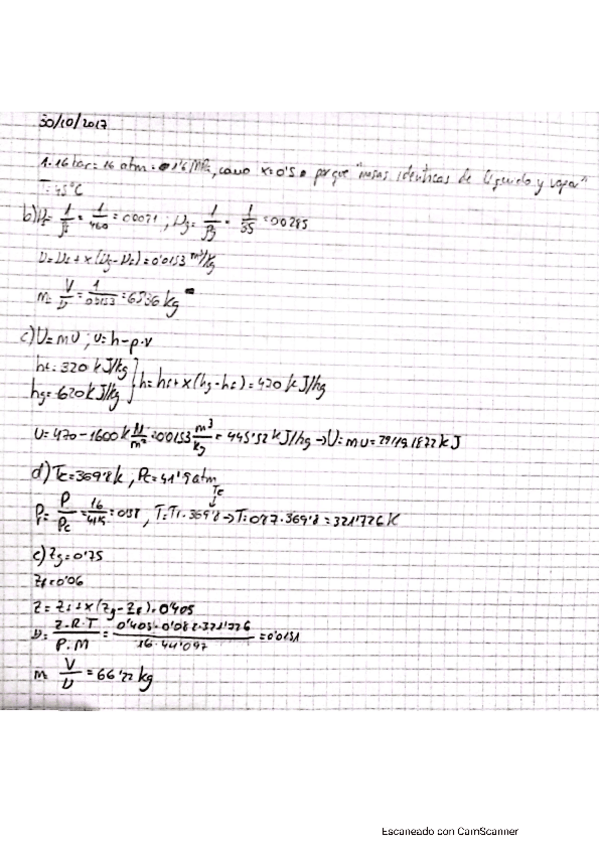 30/10/2017
1. 16 bar = 16 atm = 1'6 MPa, como x=0'5 porque "masas identicas de liquido y vapor"
T=45°C
b) νf = 1/ρf = 1/460 = 0'0021 ; νg = 1/ρg = 1/35 = 0'0285
ν = νf + x(νg-νf) = 0'0153 m³/kg
m = V/ν = 1/0'0153 = 65'36 kg
c) U = mu ; u = h-p·v
hf = 320 kJ/kg
hg = 620 kJ/kg } h = hf + x(hg-hf) = 470 kJ/kg
u = 470 - 1600 k N/m² · 0'0153 m³/kg = 445'52 kJ/kg → U = mu = 29119'1872 kJ
d) Tc = 369'8 K, Pc = 41'9 atm
Pr = P/Pc = 16/41'9 = 0'38, T = Tr · 369'8 → T = 0'87 · 369'8 = 321'726 K
Tc
e) Zg = 0'75
Zf = 0'06
Z = Zf + x(Zg-Zf) = 0'405
ν = Z·R·T/P·M = 0'405·0'082·321'726/16·44'097 = 0'0151
m = V/ν = 66'22 kg
Escaneado con CamScanner